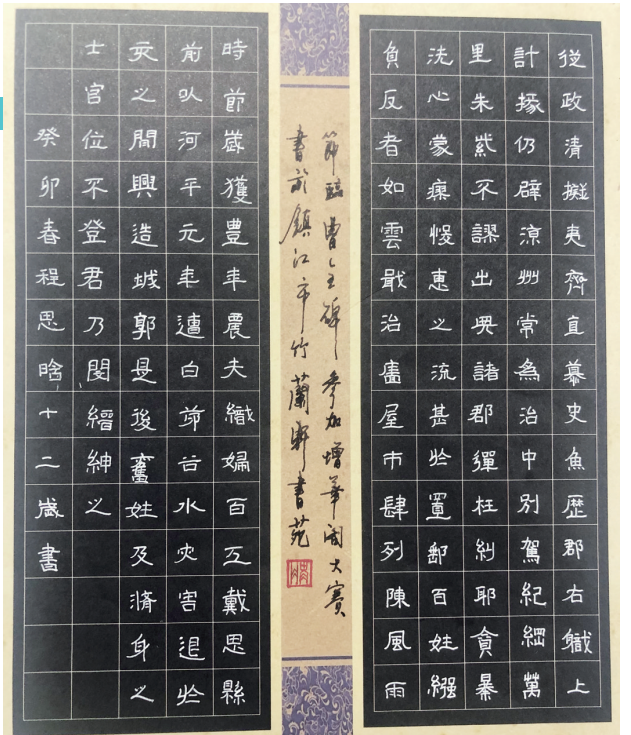 從政清擬夷齊直慕史魚歷郡右職上
計掾仍辟涼州常為治中別駕紀綱萬
里朱紫不謬出典諸郡彈枉糾邪貪暴
洗心蒙瘳悛惠之流甚於置郵百姓繈
負反者如雲戢治廧屋市肆列陳風雨
節臨曹全碑參加增華閣大賽
書於鎮江市竹蘭軒書苑
時節歲獲豊年農夫織婦百工戴恩縣
前以河平元年遭白茅谷水災害退於
亥之間興造城郭是後舊姓及脩身之
士官位不登君乃閔縉紳之
癸卯春程思晗十二歲書